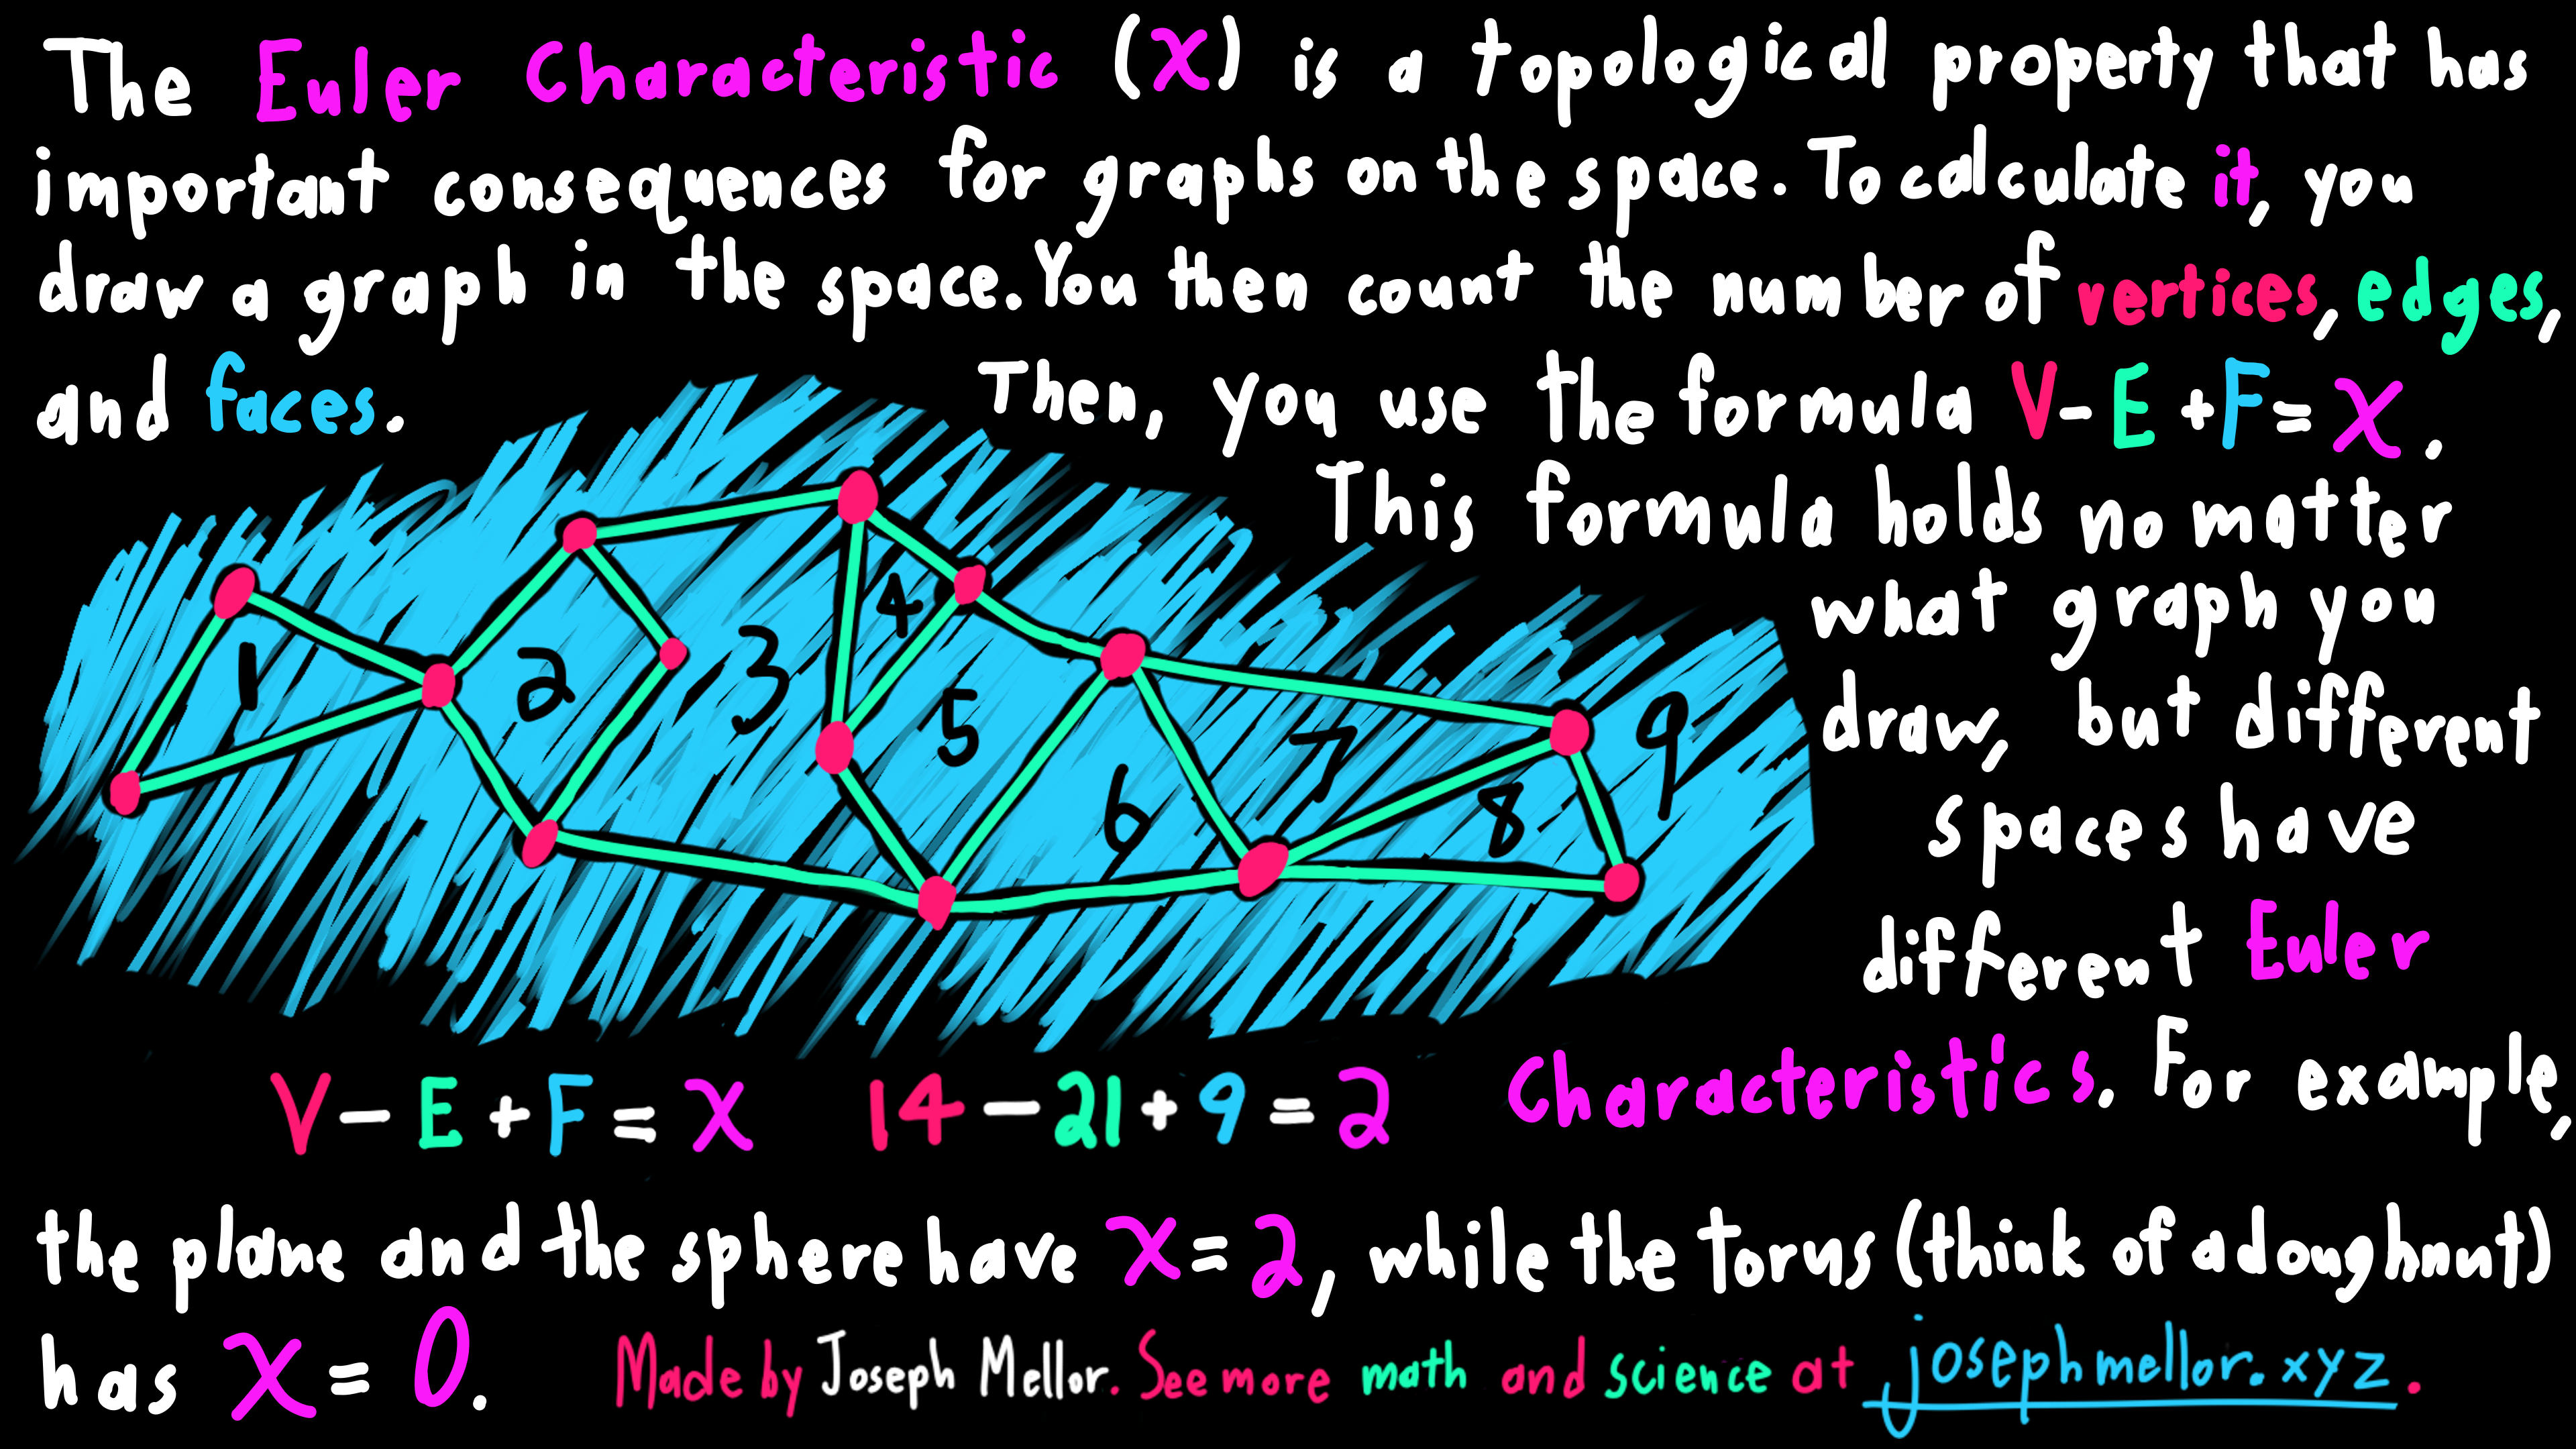 The Euler Characteristic (χ) is a topological property that has
important consequences for graphs on the space. To calculate it, you
draw a graph in the space. You then count the number of vertices, edges,
and faces. Then, you use the formula V-E+F=χ.
This formula holds no matter
what graph you
draw, but different
spaces have
different Euler
1
2
3
4
5
6
7
8
9
V-E+F=χ 14-21+9=2
Characteristics. For example,
the plane and the sphere have χ=2, while the torus (think of a doughnut)
has χ=0.
Made by Joseph Mellor. See more math and science at josephmellor.xyz.